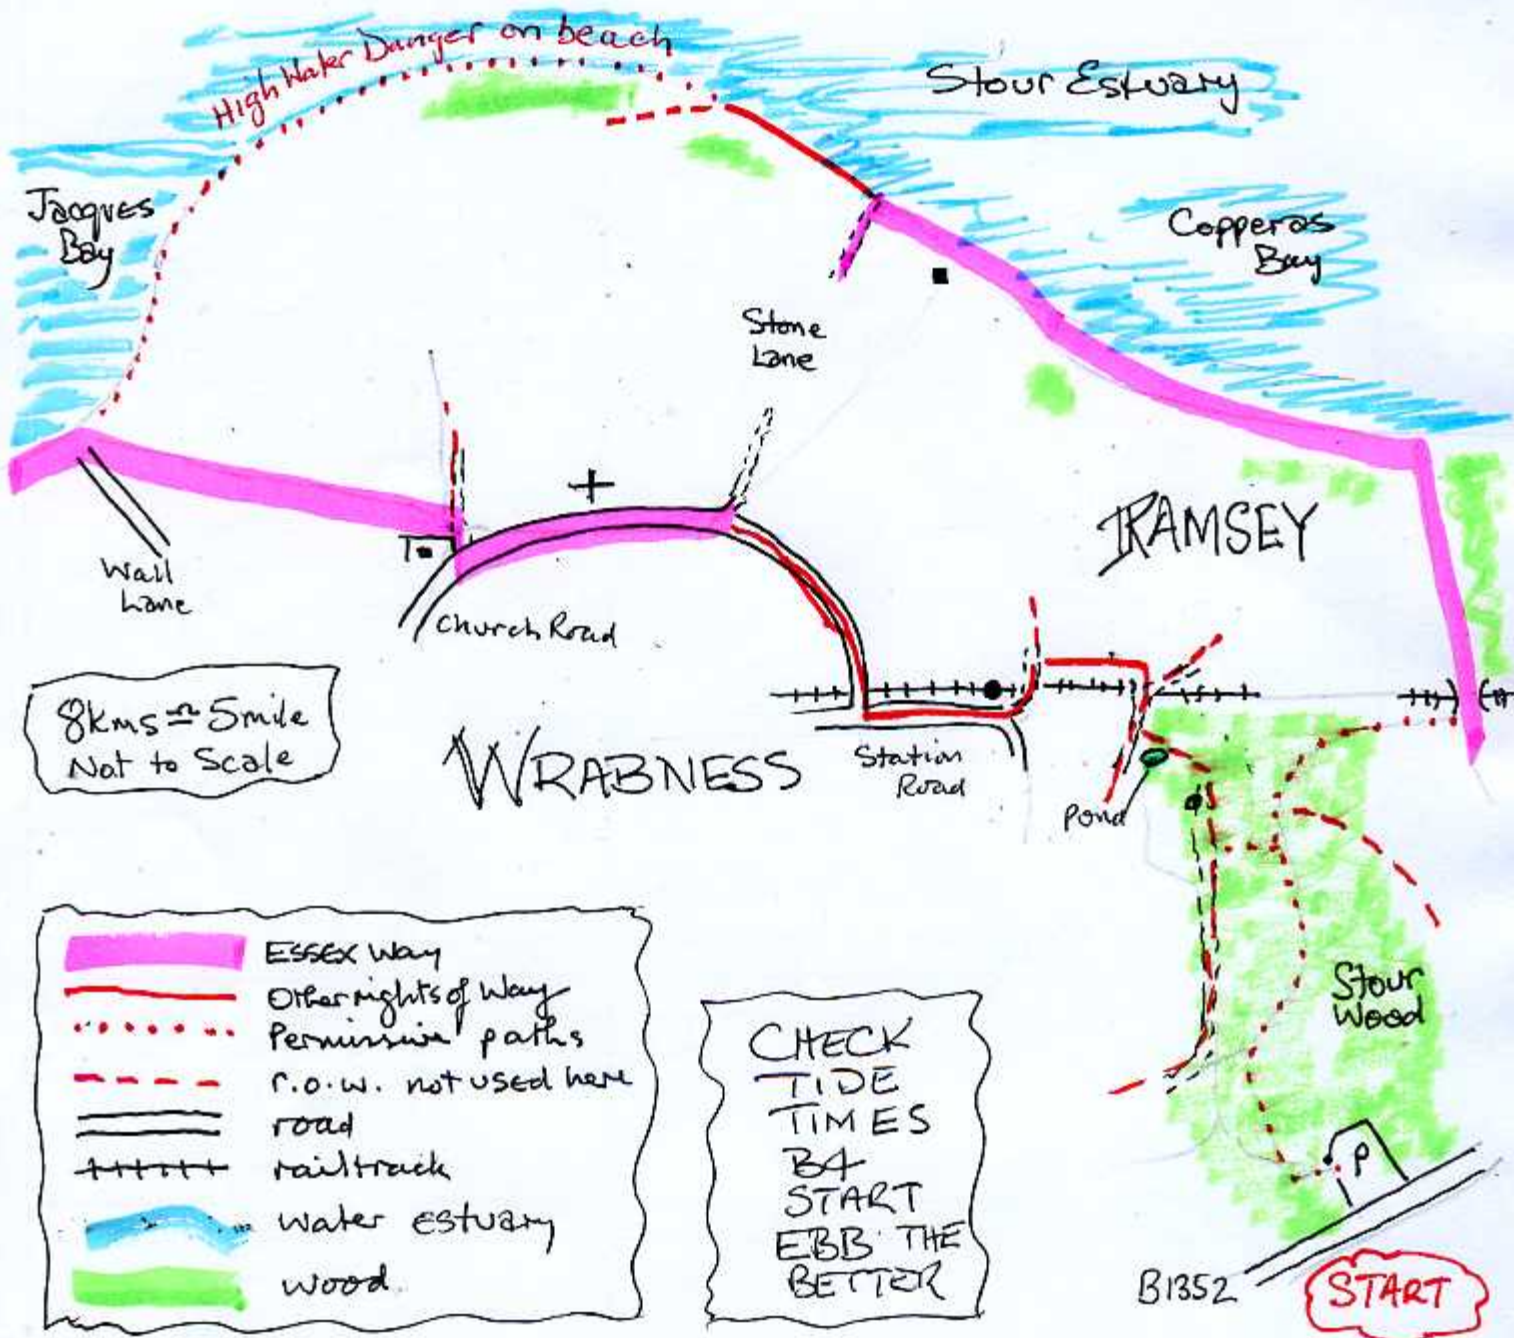 High Water Danger on beach
Stour Estuary
Jacques
Bay
Copperas
Bay
Stone
Lane
RAMSEY
Wall
Lane
Church Road
8kms ≏ 5mile
Not to Scale
WRABNESS
Station
Road
Pond
ESSEX Way
Other rights of Way
Permissive paths
r.o.w. not used here
road
railtrack
water estuary
wood
CHECK
TIDE
TIMES
B4
START
EBB THE
BETTER
Stour
Wood
P
B1352
START